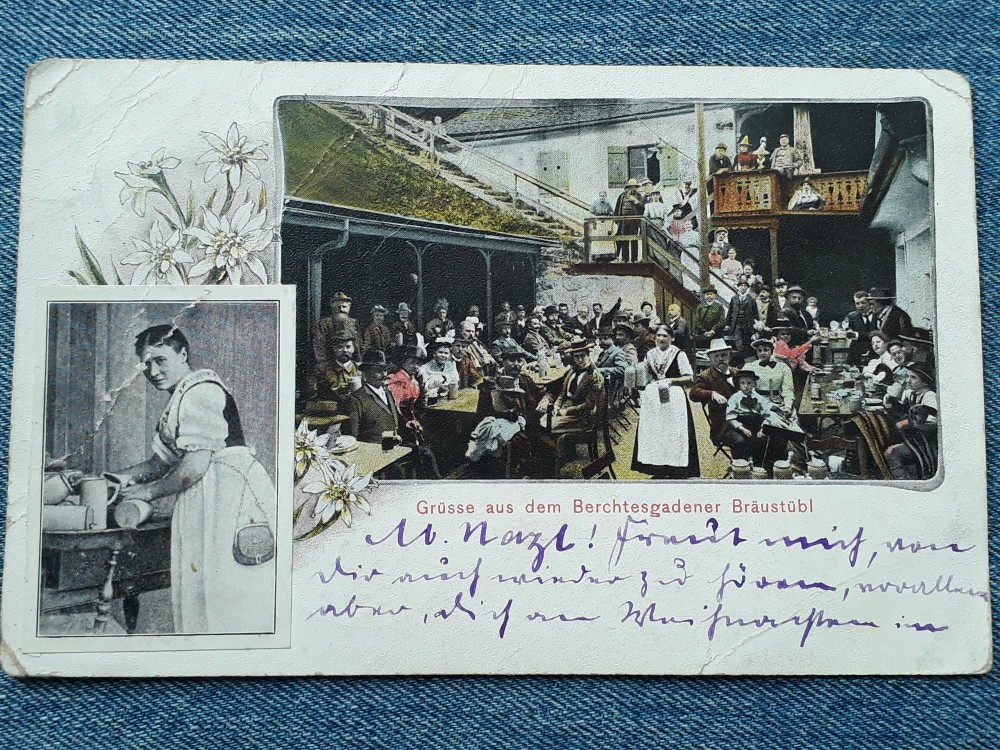 Grüsse aus dem Berchtesgadener Bräustübl
M. Nazl! Freut mich, von
Dir auch wieder zu hören, vorallem
aber, dich an Weihnachten in